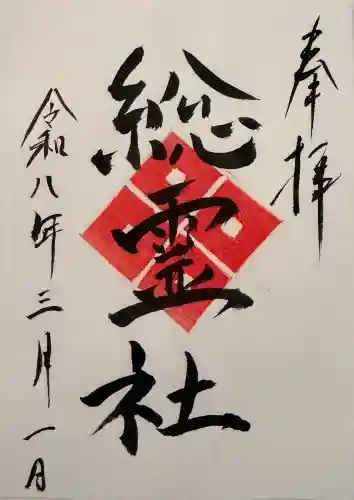 奉拝
総霊社
令和八年三月一日